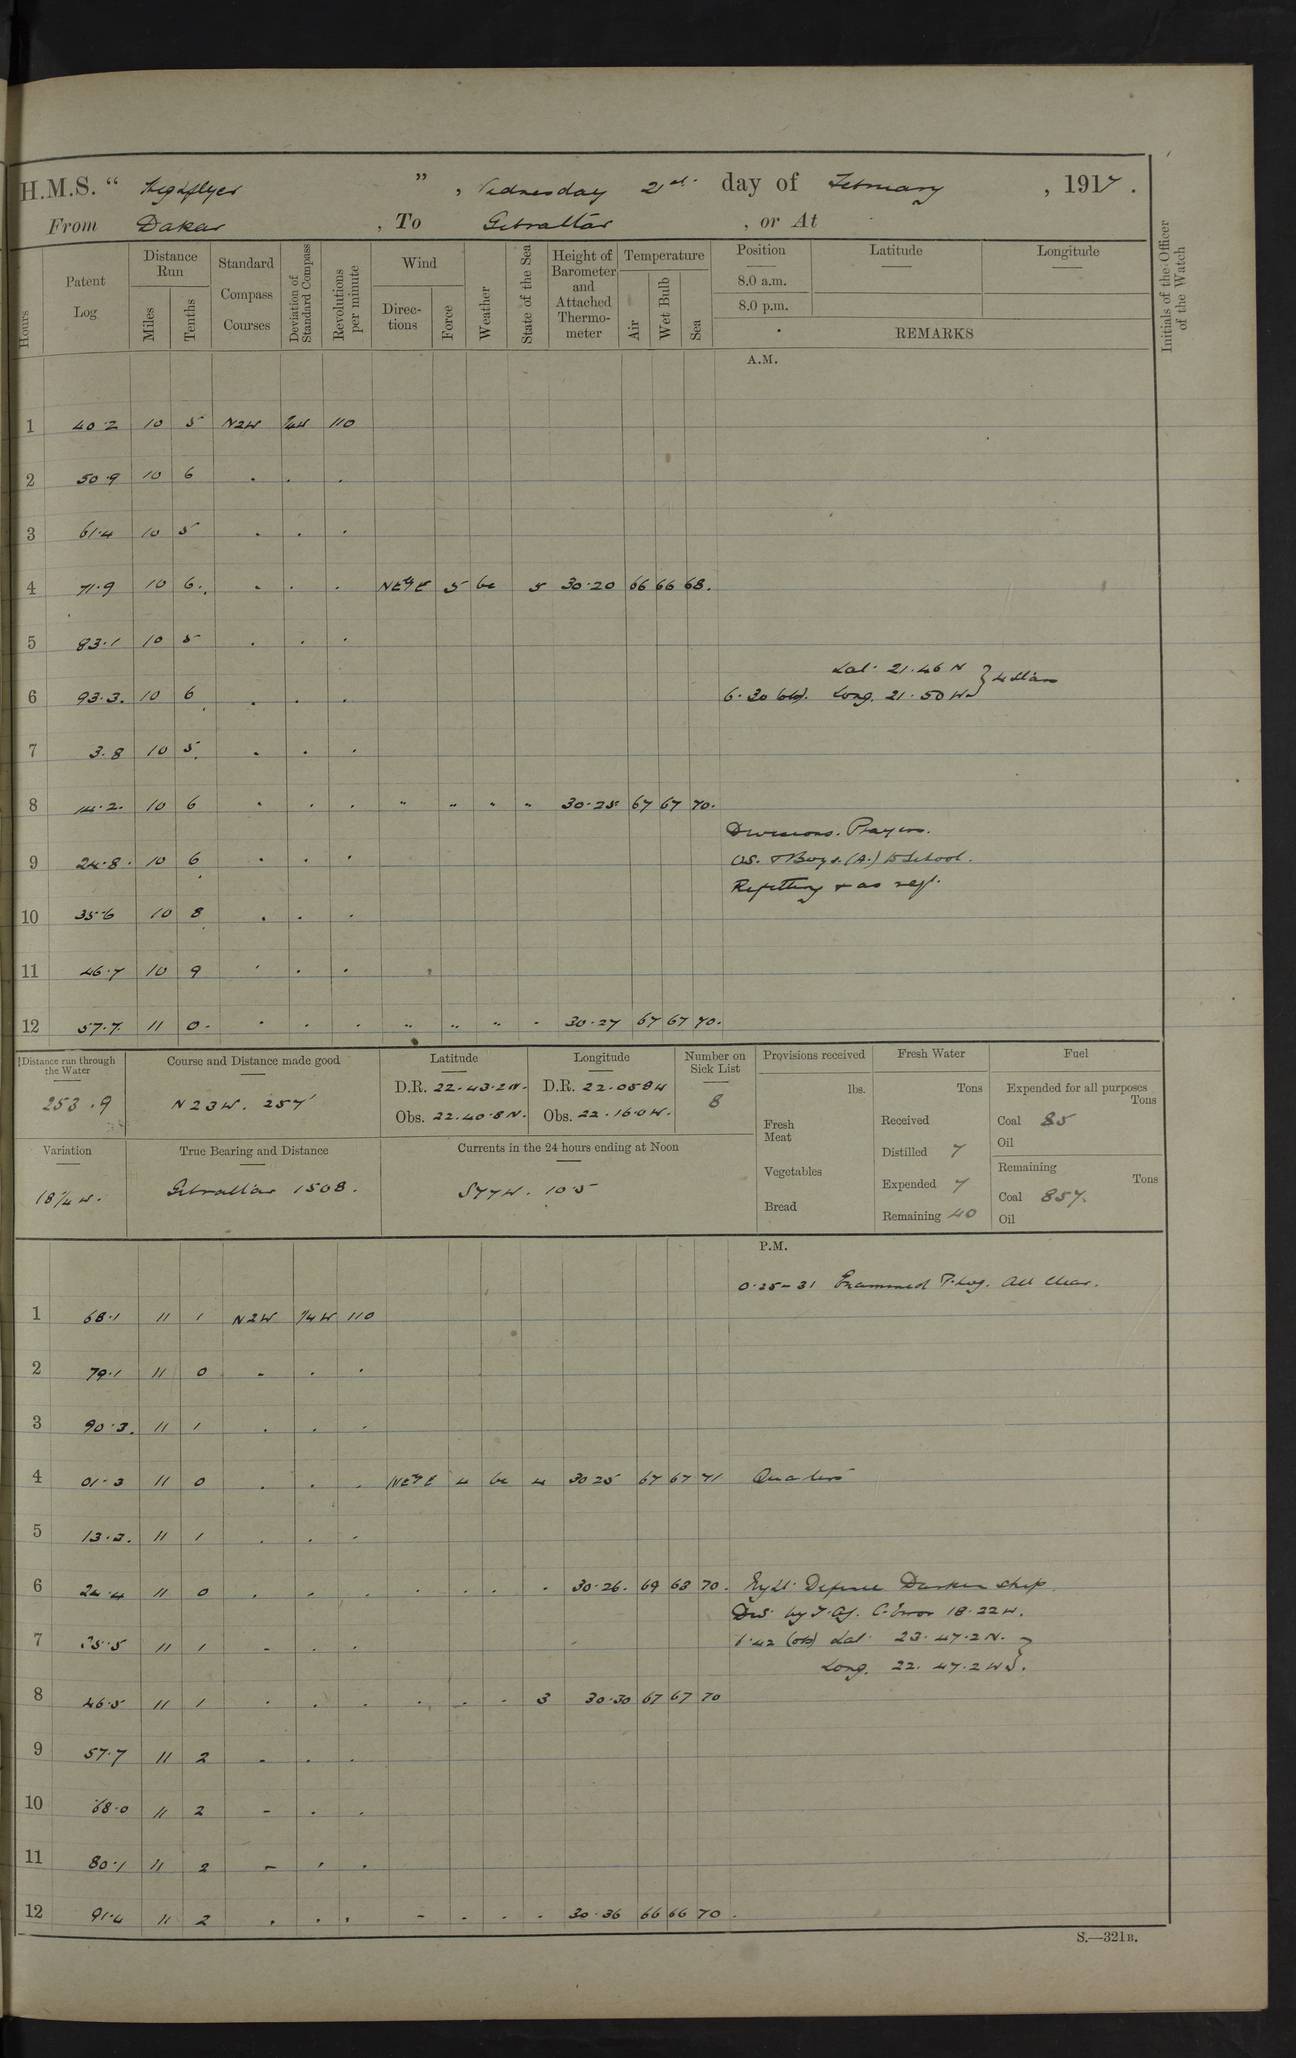 H.M.S. “ Highflyer ” , Wednesday 21st day of February , 1917 .
From Dakar , To Gibraltar , or At
Hours
Patent Log
Distance Run
Miles
Tenths
Standard Compass Courses
Deviation of Standard Compass
Revolutions per minute
Wind
Directions
Force
Weather
State of the Sea
Height of Barometer and Attached Thermometer
Temperature
Air
Wet Bulb
Sea
Position
8.0 a.m.
8.0 p.m.
Latitude
Longitude
REMARKS
Initials of the Officer of the Watch
A.M.
1 40.2 10 5 N2W 1/4W 110
2 50.9 10 6 . . .
3 61.4 10 5 . . .
4 71.9 10 6 . . . NE'yE 5 bc 5 30.20 66 66 68.
5 83.1 10 5 . . .
Lat. 21.46 N
6 93.3. 10 6 . . . 6.30 (obs). Long. 21.50 W } 4 Stars
7 3.8 10 5 . . .
8 14.2. 10 6 . . . " " " " 30.25 67 67 70.
Divisions. Prayers.
9 24.8. 10 6 . . . OS. & Boys. (A.) to School.
Refitting & as reqt.
10 35.6 10 8 . . .
11 46.7 10 9 . . .
12 57.7. 11 0. . . . " " " . 30.27 67 67 70.
Distance run through the Water
253.9
Course and Distance made good
N23W. 257'
Latitude
D.R. 22.43.2N.
Obs. 22.40.8N.
Longitude
D.R. 22.058W
Obs. 22.16.0W.
Number on Sick List
8
Provisions received
lbs.
Fresh Meat
Vegetables
Bread
Fresh Water
Tons
Received
Distilled 7
Expended 7
Remaining 40
Fuel
Expended for all purposes
Tons
Coal 85
Oil
Remaining
Tons
Coal 857.
Oil
Variation
18 1/4 W.
True Bearing and Distance
Gibraltar 1508.
Currents in the 24 hours ending at Noon
S77W. 10.5
P.M.
0.25-31 Examined P. Log. All clear.
1 68.1 11 1 N2W 1/4W 110
2 79.1 11 0 - . .
3 90.3. 11 1 . . .
4 01.3 11 0 . . . NE'yE 4 bc 4 30.25 67 67 71 Quarters
5 13.3. 11 1 . . .
6 24.4 11 0 . . . . . . . 30.26. 69 68 70. Ev'g Qt. Defence Darken ship.
C. Error 18.22W.
7 35.5 11 1 - . . 6.42 (obs) Lat. 23.47.2N. }
Long. 22.47.2W }.
8 46.5 11 1 . . . . . . 3 30.30 67 67 70
9 57.7 11 2 - . .
10 68.0 11 2 - . .
11 80.1 11 2 - . .
12 91.4 11 2 . . . - . . . 30.36 66 66 70.
S.—321B.